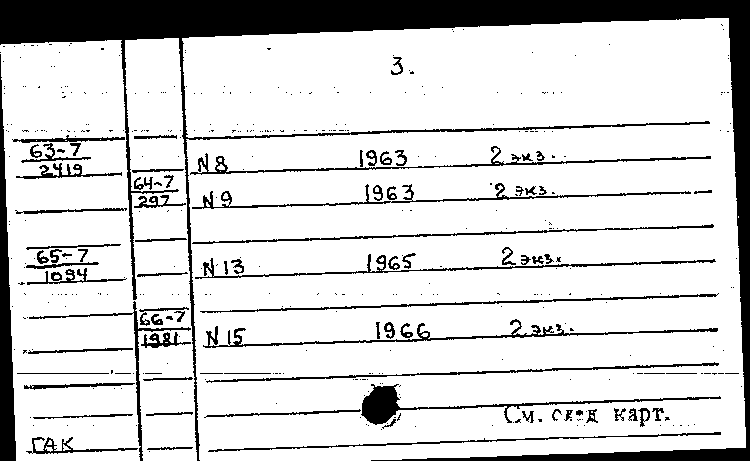 3.
63-7
2419
N 8 1963 2 экз.
64-7
297
N 9 1963 2 экз.
65-7
1094
N 13 1965 2 экз.
66-7
1981
N 15 1966 2 экз.
См. след карт.
ГАК